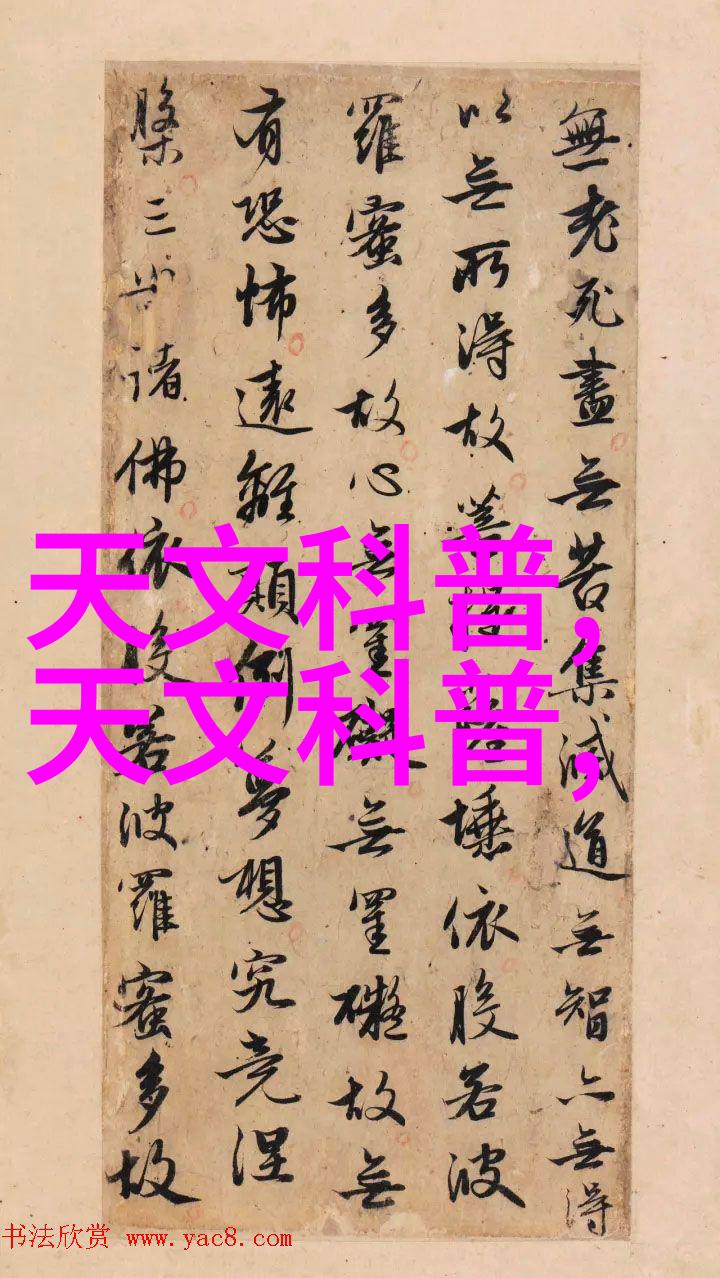 無老死盡无苦集滅道无智亦無得
以无所得故菩提薩埵依般若波
羅蜜多故心无罣礙无罣礙故无
有恐怖遠離顛倒夢想究竟涅
槃三世諸佛依般若波羅蜜多故
天文科普,
天文科普,
书法欣赏 www.yac8.com